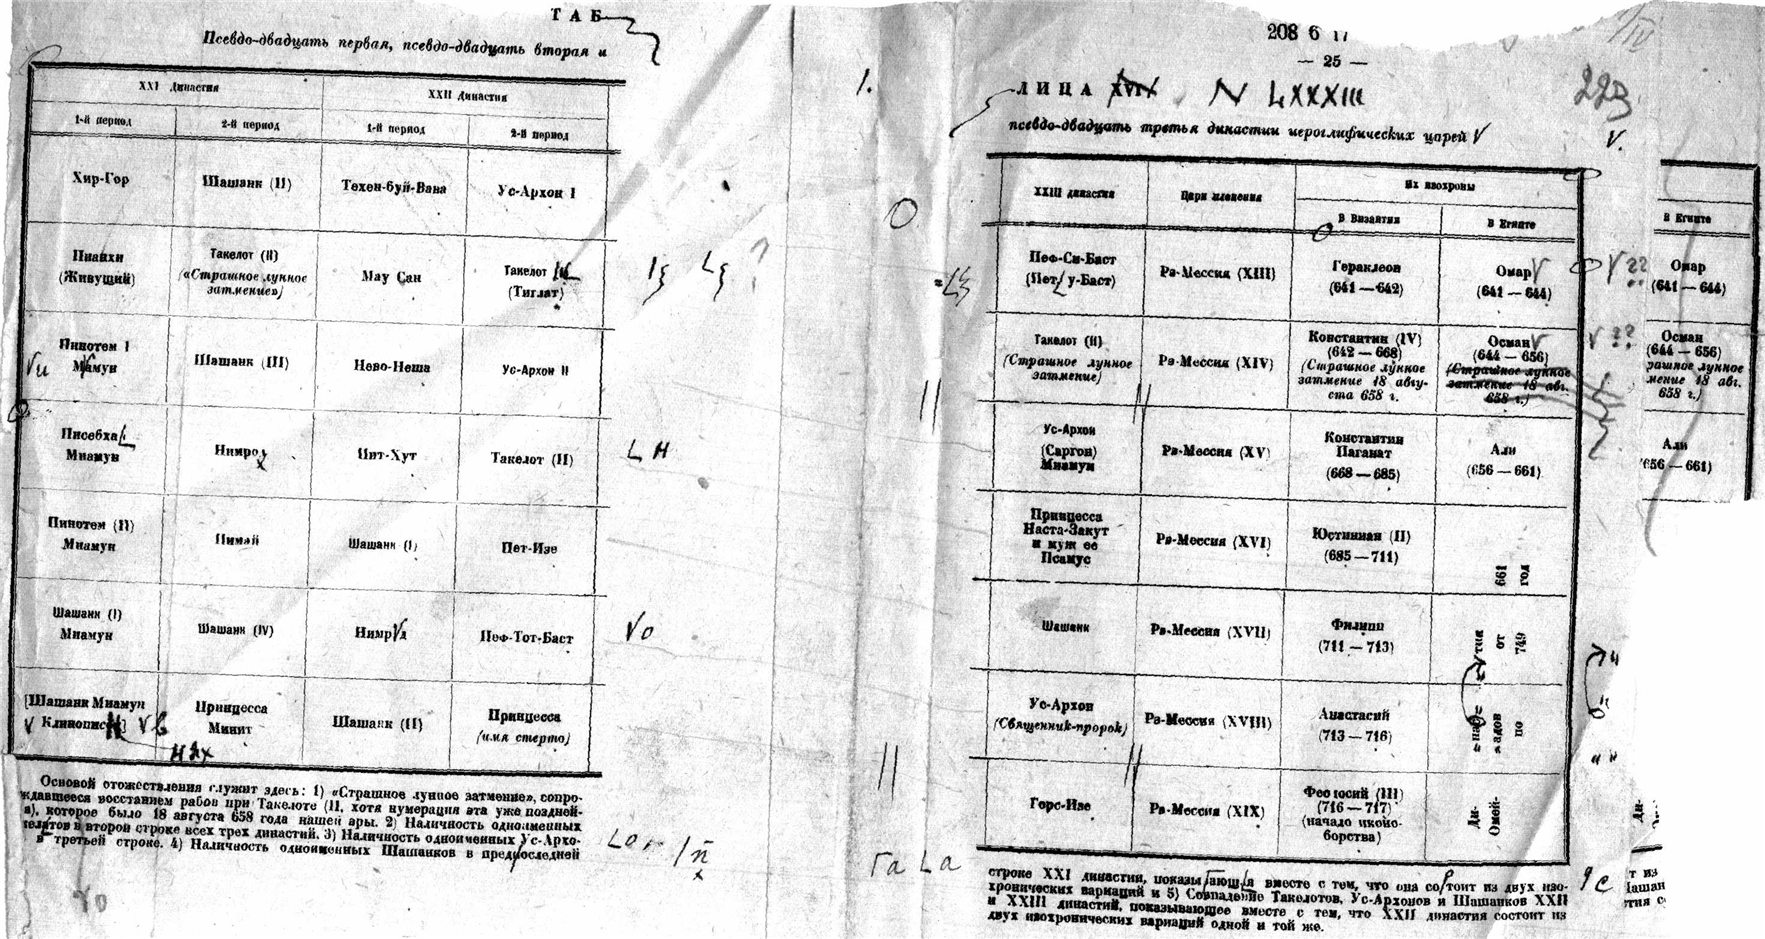 ТАБ
Псевдо-двадцать первая, псевдо-двадцать вторая и
XXI Династия XXII Династия
1-й период 2-й период 1-й период 2-й период
Хир-Гор Шашанк (II) Техен-буй-Вана Ус-Архон I
Пианхи
(Живущий)
Такелот (II)
(«Страшное лунное
затмение»)
Мау Сан
Такелот
(Тиглат)
Пинотем I
Мамун
Шашанк (III) Нево-Неша Ус-Архон II
Писебха
Миамун
Нимрод Пит-Хут Такелот (II)
Пинотем (II)
Миамун
Пимай Шашанк (I) Пет-Изе
Шашанк (I)
Миамун
Шашанк (IV) Нимрд Пеф-Тот-Баст
[Шашанк Миамун
Клинопис
Принцесса
Минит
Шашанк (II)
Принцесса
(имя стерто)
Основой отожествления служит здесь: 1) «Страшное лунное затмение», сопро-
ждавшееся восстанием рабов при Такелоте (II, хотя нумерация эта уже поздней-
я), которое было 18 августа 658 года нашей эры. 2) Наличность одноименных
в второй строке всех трех династий. 3) Наличность одноименных Ус-Архо-
в третьей строке. 4) Наличность одноименных Шашанков в предпоследней
208 6 17
— 25 —
ЛИЦА XVII N LXXXIII
223
псевдо-двадцать третья династии иероглифических царей
XXIII династия Цари пленения Их изохроны
В Византии В Египте
Пеф-Си-Баст
(Пет у-Баст)
Рэ-Мессия (XIII)
Гераклеон
(641—642)
Омар
(641—644)
Такелот (II)
(Страшное лунное
затмение)
Рэ-Мессия (XIV)
Константин (IV)
(642—668)
(Страшное лунное
затмение 18 авгу-
ста 658 г.
Осман
(644—656)
(Страшное лунное
затмение 18 авг.
658 г.)
Ус-Архон
(Саргон)
Миамун
Рэ-Мессия (XV)
Константин
Паганат
(668—685)
Али
(656—661)
Принцесса
Наста-Закут
и муж ее
Псамус
Рэ-Мессия (XVI)
Юстиниан (II)
(685—711)
Шашанк Рэ-Мессия (XVII)
Филипп
(711—713)
Ус-Архон
(Священник-пророк)
Рэ-Мессия (XVIII)
Анастасий
(713—716)
Горс-Изе Рэ-Мессия (XIX)
Феодосий (III)
(716—717)
(начало иконо-
борства)
661
год
от
749
по
Ди-
Омей-
строке XXI династии, показы ающ я вместе с тем, что она состоит из двух изо-
хронических вариаций и 5) Совпадение Такелотов, Ус-Архонов и Шашанков XXII
и XXIII династий, показывающее вместе с тем, что XXII династия состоит из
двух изохронических вариаций одной и той же.
В Египте
Омар
(641—644)
Осман
(644—656)
рашное лунное
мение 18 авг.
658 г.)
Али
656—661)
Ди-
т из
Шашан